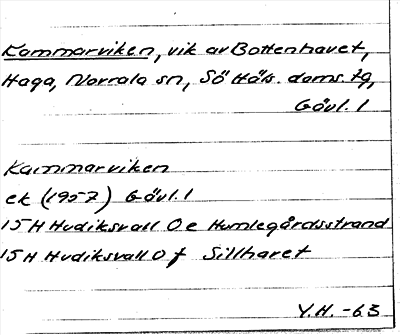 Kammarviken, vik av Bottenhavet,
Haga, Norrala sn, Sö Häls. doms. tg,
Gävl. l
Kammarviken
ek (1957) Gävl. l
15H Hudiksvall 0e Humlegårdsstrand
15H Hudiksvall 0f Sillharet
Y.H. -63